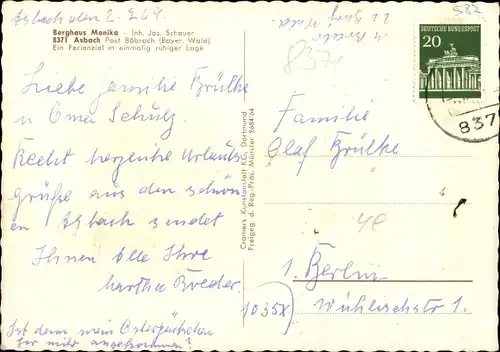 Asbach den 2.7.69.
Berghaus Monika - Inh. Jos. Schauer
8371 Asbach Post Böbrach (Bayer. Wald)
Ein Ferienziel in einmalig ruhiger Lage
Liebe Familie Brülke
u Oma Schulz.
Recht herzliche Urlaubs
grüße aus den schön
en Asbach sendet
Ihnen alle Ihre
Martha Broeder.
Ist denn mein Osterpäckchen
für angekommen?
Cramers Kunstanstalt KG, Dortmund
Freigeg. d. Reg.-Präs. Münster
582
837
DEUTSCHE BUNDESPOST
20
837
Familie
Olaf Brülke
1. Berlin
1035
Wühlischstr 1.